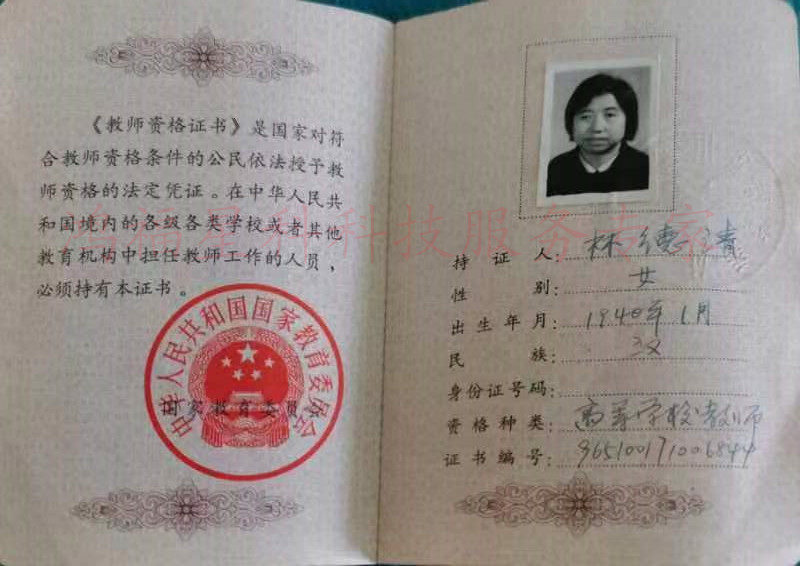 《教师资格证书》是国家对符
合教师资格条件的公民依法授予教
师资格的法定凭证。在中华人民共
和国境内的各级各类学校或者其他
教育机构中担任教师工作的人员，
必须持有本证书。
中华人民共和国国家教育委员会
国家教育委员会
持证人：林德清
性别：女
出生年月：1940年1月
民族：汉
身份证号码：
资格种类：高等学校教师
证书编号：965100171006844
科技服务专家